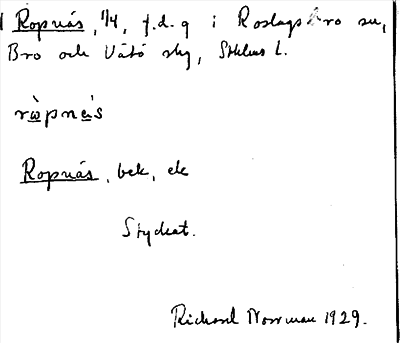 Ropnäs, 1/4, f.d. g i Roslagsbro sn,
Bro och Vätö skg, Sthlms l.
ròpnäs
Ropnäs, bek, ek
Styckat.
Richard Norrman 1929.